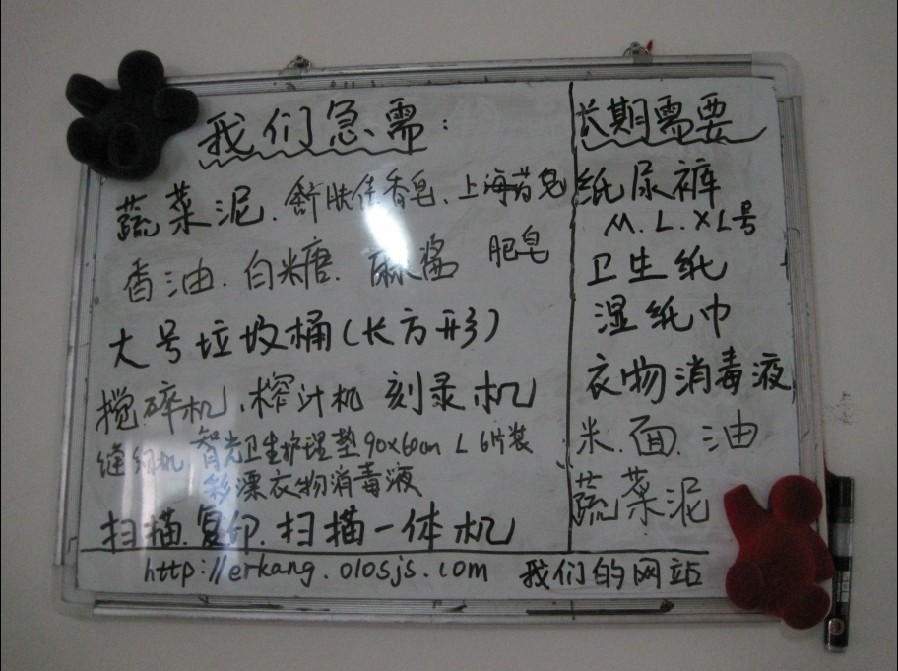 我们急需:
蔬菜泥.舒肤佳香皂、上海药皂
香油.白糖.麻酱 肥皂
大号垃圾桶(长方形)
搅碎机.榨汁机 刻录机
缝纫机 智光卫生护理垫90x60cm L 6片装
彩漂衣物消毒液
扫描.复印.扫描一体机
长期需要
纸尿裤
M.L.XL号
卫生纸
湿纸巾
衣物消毒液
米.面.油
蔬菜泥
http://erkang.olosjs.com 我们的网站